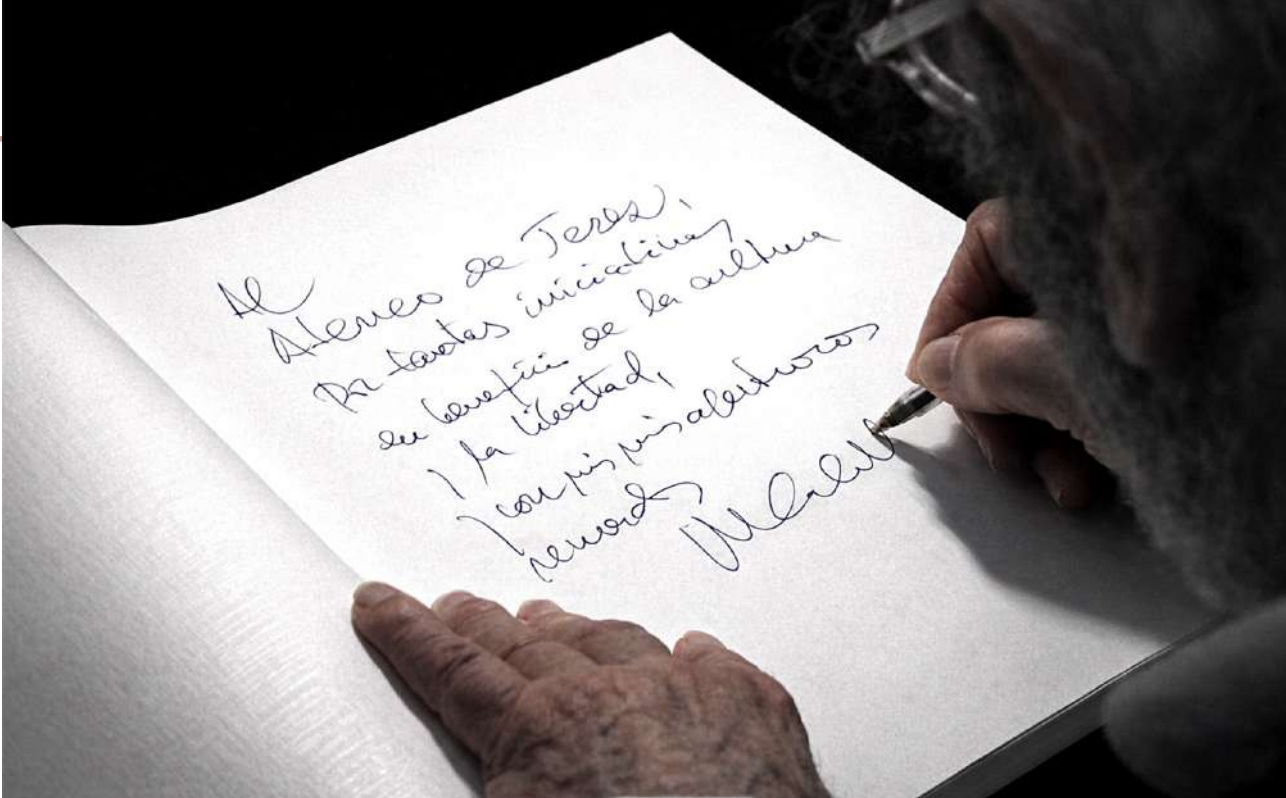 Al
Ateneo de Jerez,
Por tantas iniciativas
en beneficio de la cultura
y la libertad,
con mis afectuosos
recuerdos